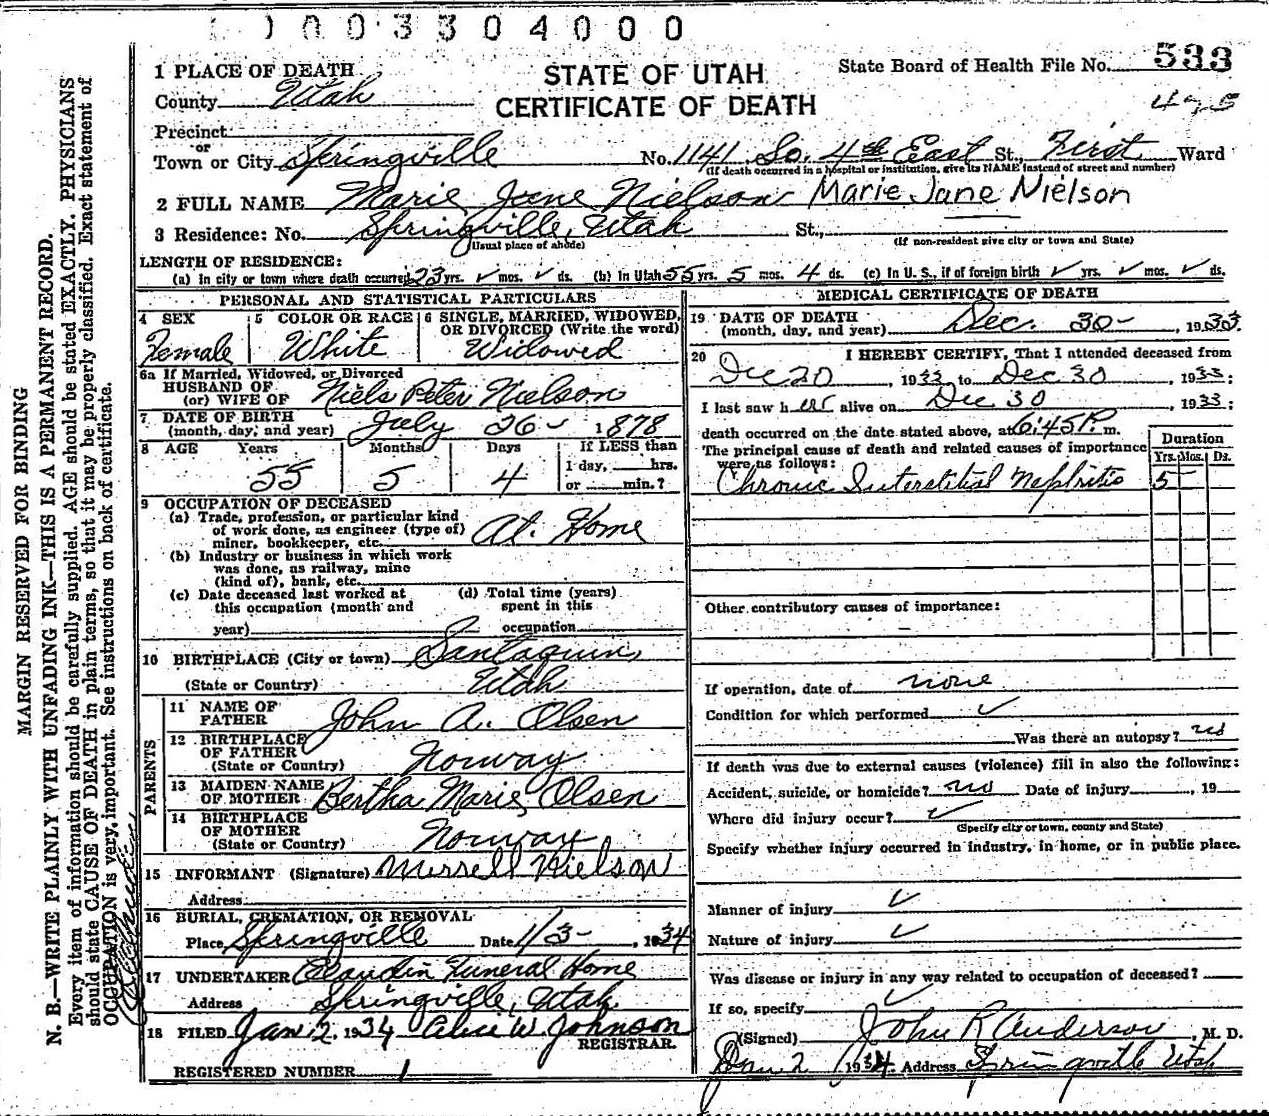 0 0 3 3 0 4 0 0 0
1 PLACE OF DEATH
STATE OF UTAH
CERTIFICATE OF DEATH
State Board of Health File No. 533
495
County Utah
Precinct
or
Town or City Springville No. 1141 So. 4th East St., First Ward
(If death occurred in a hospital or institution, give its NAME instead of street and number)
2 FULL NAME Marie Jane Nielson Marie Jane Nielson
3 Residence: No. Springville, Utah St.,
(Usual place of abode) (If non-resident give city or town and State)
LENGTH OF RESIDENCE:
(a) In city or town where death occurred 23 yrs. ✓ mos. ✓ ds. (b) In Utah 55 yrs. 5 mos. 4 ds. (c) In U. S., if of foreign birth ✓ yrs. ✓ mos. ✓ ds.
PERSONAL AND STATISTICAL PARTICULARS
4 SEX Female
5 COLOR OR RACE White
6 SINGLE, MARRIED, WIDOWED, OR DIVORCED (Write the word) Widowed
6a If Married, Widowed, or Divorced
HUSBAND OF
(or) WIFE OF Niels Peter Nielson
7 DATE OF BIRTH
(month, day, and year) July 26- 1878
8 AGE Years Months Days If LESS than
55 5 4 1 day, hrs.
or min.?
9 OCCUPATION OF DECEASED
(a) Trade, profession, or particular kind
of work done, as engineer (type of)
miner, bookkeeper, etc. At Home
(b) Industry or business in which work
was done, as railway, mine
(kind of), bank, etc.
(c) Date deceased last worked at
this occupation (month and
year)
(d) Total time (years)
spent in this
occupation
10 BIRTHPLACE (City or town) Santaquin,
(State or Country) Utah
PARENTS
11 NAME OF
FATHER John A. Olsen
12 BIRTHPLACE
OF FATHER
(State or Country) Norway
13 MAIDEN NAME
OF MOTHER Bertha Marie Olsen
14 BIRTHPLACE
OF MOTHER
(State or Country) Norway
15 INFORMANT (Signature) Merrell Nielson
Address
16 BURIAL, CREMATION, OR REMOVAL
Place Springville Date 1/3- , 1934
17 UNDERTAKER Claudin Funeral Home
Address Springville, Utah
18 FILED Jan. 2, 1934 Alice W. Johnson
REGISTRAR.
REGISTERED NUMBER 1
MEDICAL CERTIFICATE OF DEATH
19 DATE OF DEATH
(month, day, and year) Dec. 30- , 1933
20 I HEREBY CERTIFY, That I attended deceased from
Dec 20 , 1933 to Dec 30 , 1933;
I last saw her alive on Dec 30 , 1933;
death occurred on the date stated above, at 6:45 P. m.
The principal cause of death and related causes of importance
were as follows:
Duration
Yrs. Mos. Ds.
Chronic Interstitial Nephritis 5-
Other contributory causes of importance:
If operation, date of none
Condition for which performed ✓
Was there an autopsy? no
If death was due to external causes (violence) fill in also the following:
Accident, suicide, or homicide? no Date of injury , 19
Where did injury occur? ✓
(Specify city or town, county and State)
Specify whether injury occurred in industry, in home, or in public place.
Manner of injury ✓
Nature of injury ✓
Was disease or injury in any way related to occupation of deceased?
If so, specify ✓
(Signed) John R Anderson , M. D.
Jan 2 1934 Address Springville Utah
MARGIN RESERVED FOR BINDING
N. B.—WRITE PLAINLY WITH UNFADING INK—THIS IS A PERMANENT RECORD.
Every item of information should be carefully supplied. AGE should be stated EXACTLY. PHYSICIANS
should state CAUSE OF DEATH in plain terms, so that it may be properly classified. Exact statement of
OCCUPATION is very important. See instructions on back of certificate.